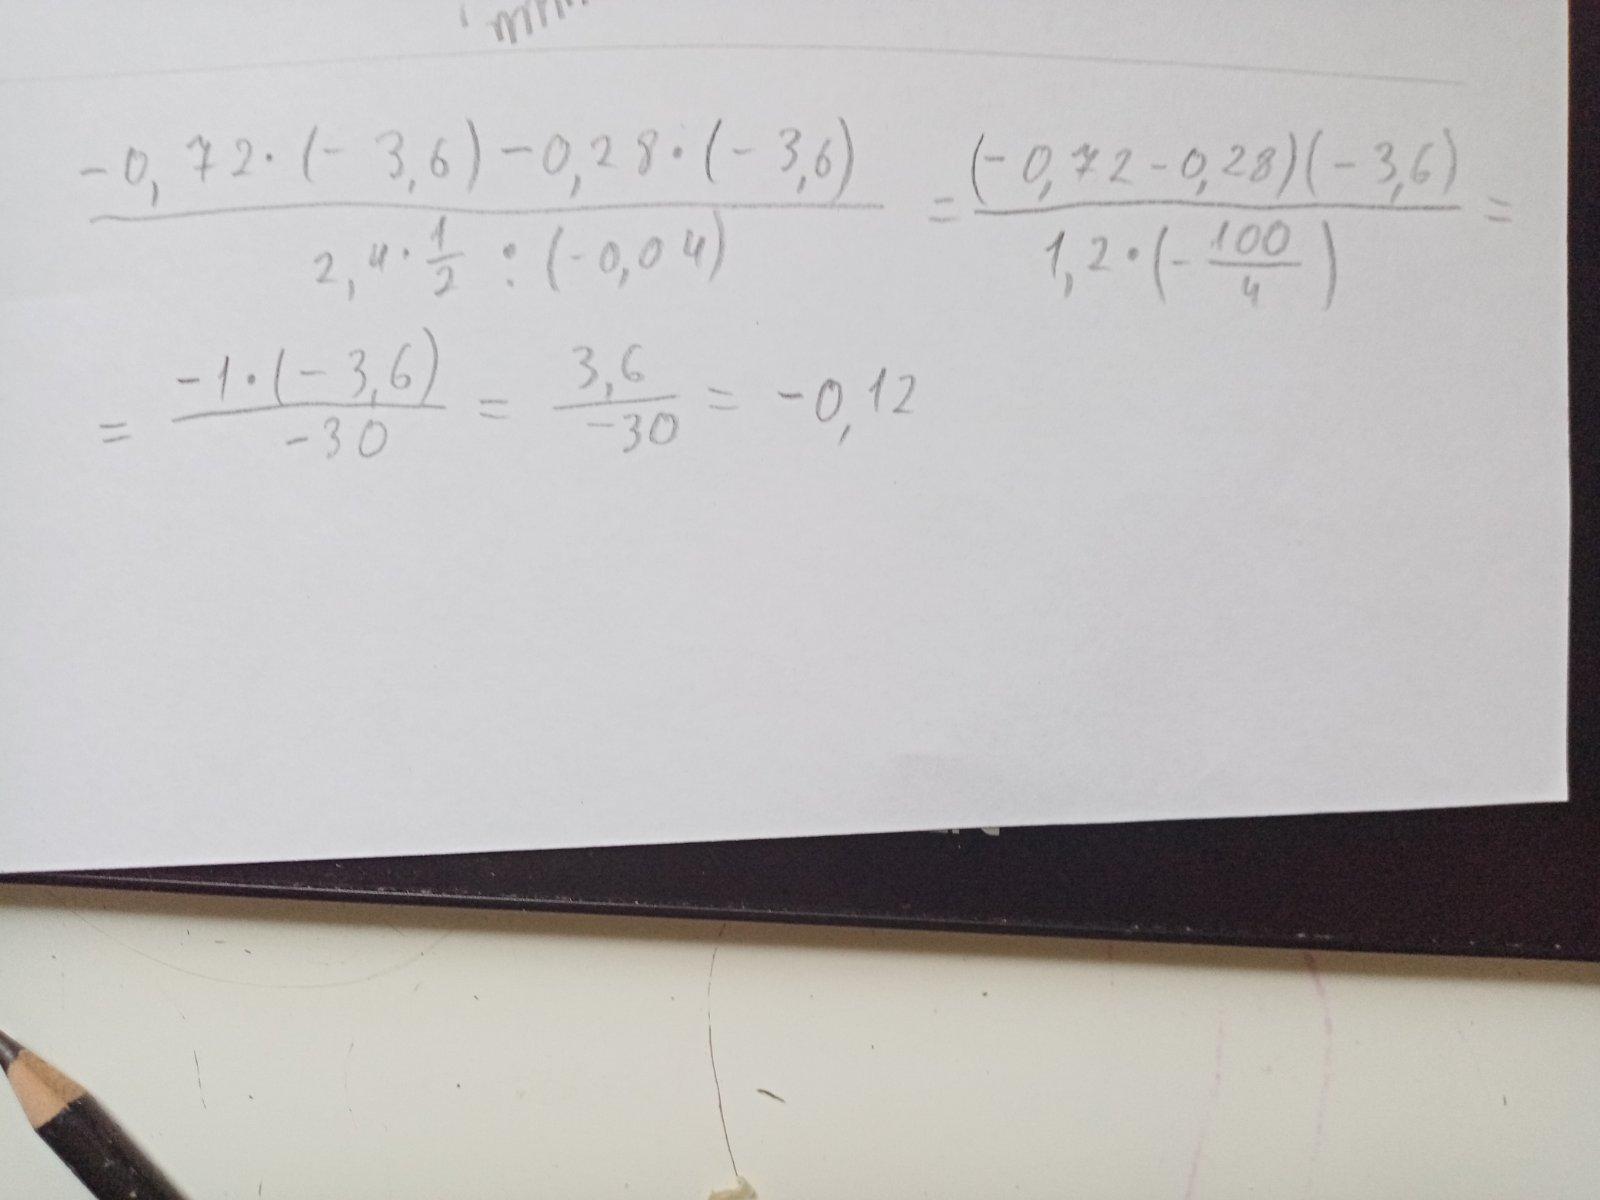 -0,72·(-3,6)-0,28·(-3,6) / 2,4·1/2 : (-0,04) = (-0,72-0,28)(-3,6) / 1,2·(-100/4) =
= -1·(-3,6) / -30 = 3,6 / -30 = -0,12